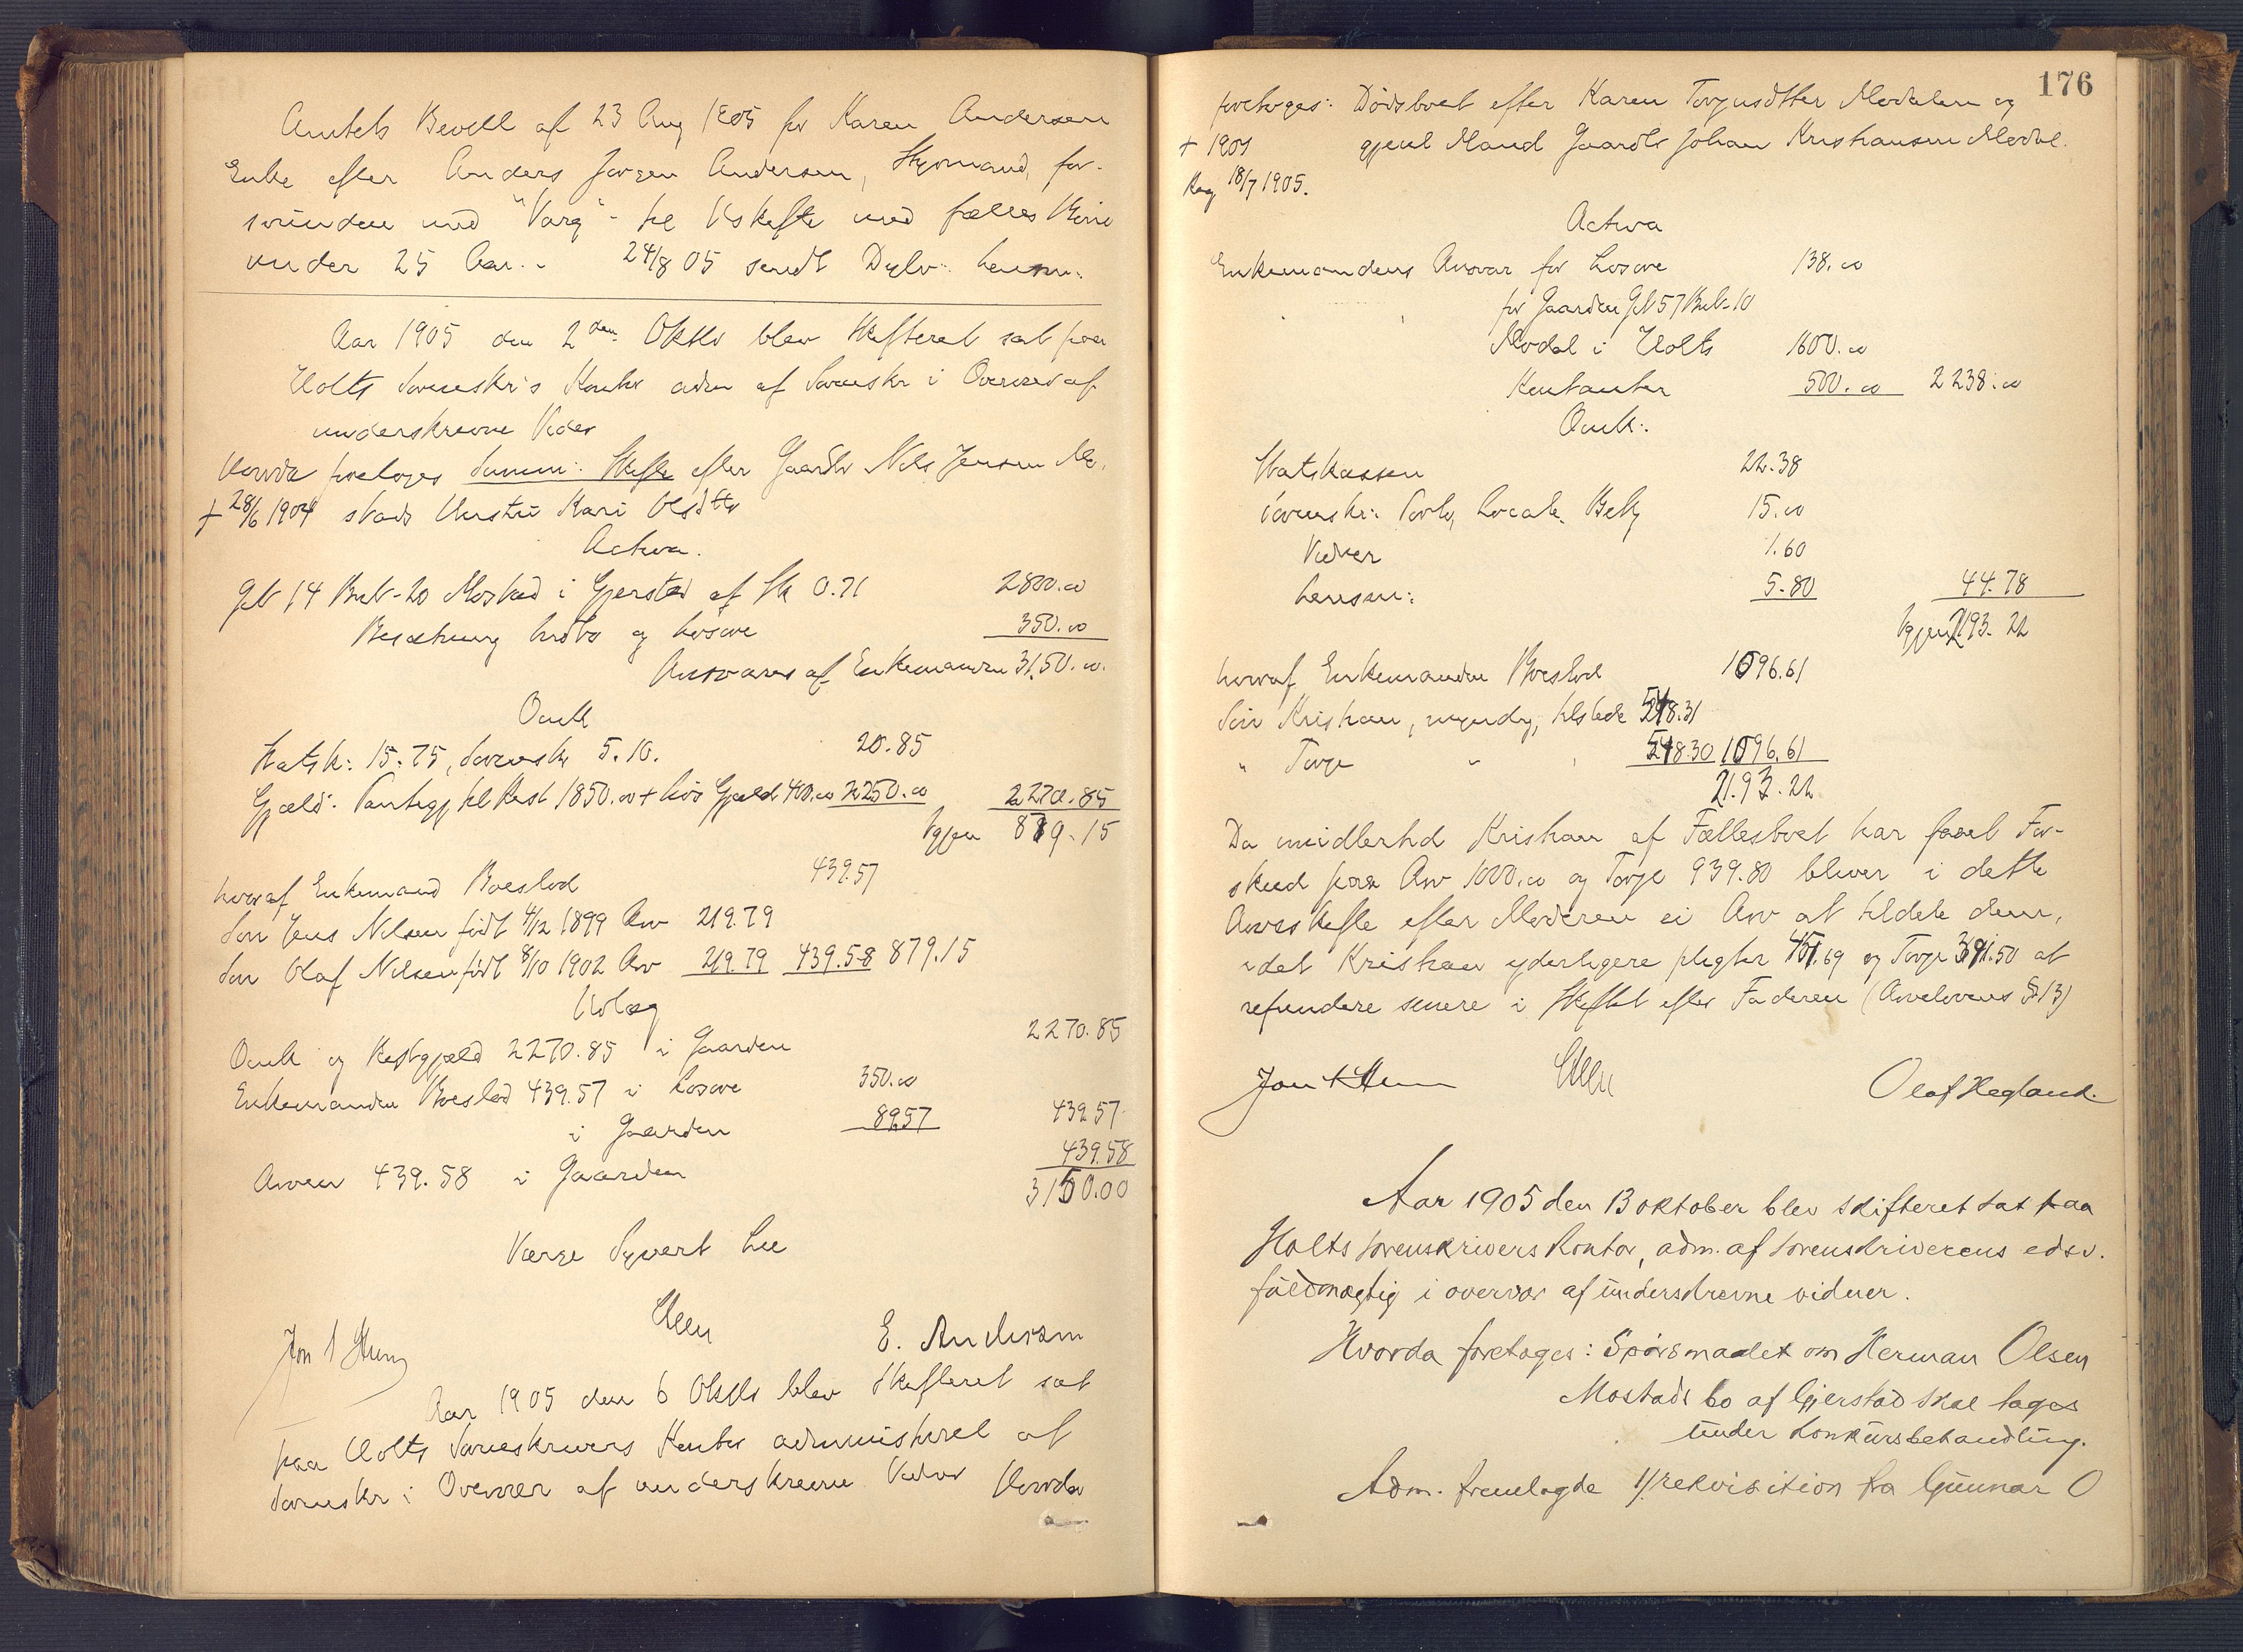 Amtets Bevill af 23 Aug 1905 for Karen Andersen
Enke efter Anders Jørgen Andersen, Styrmand, for-
svunden med "Varg" - til Uskifte med fælles Børn
under 25 Aar. - 24/8 05 sendt Dybv: lensm:
Aar 1905 den 2den Oktbr blev Skifteret sat paa
Holts Sorenskr's Kontor adm af Sorenskr i Overvær af
underskrevne Vidner
Hvorda foretoges Summ: Skifte efter Gaardbr Nils Jensen
+ 28/6 1904 Hustru Kari Olsdtr
Activa.
Gb 14 Bn 20 Mostad i Gjerstad af Sk 0.71 2800.00
Besætning Indbo og Løsøre 350.00
Ansvares af Enkemanden 3150.00.
Omk
Statsk: 15.75, Sorensk 5.10. 20.85
Gjæld: Panteg til Rest 1850.00 + løs Gjæld 400.00 2250.00 2270.85
Igjen 879.15
hvoraf Enkemand Boeslod 439.57
Søn Jens Nilsen født 4/12 1899 Arv 219.79
Søn Olaf Nilsen født 8/10 1902 Arv 219.79 439.58 879.15
Udlæg
Omk og Restgjæld 2270.85 i Gaarden 2270.85
Enkemanden Boeslod 439.57 i Løsøre 350.00
i Gaarden 89.57 439.57
Arven 439.58 i Gaarden 439.58
3150.00
Værge Syvert Lie
E. Andersen
Aar 1905 den 6 Oktbr blev Skifteret sat
paa Holts Sorenskrivers Kontor administreret af
Sorenskr i Overvær af underskrevne Vidner Hvorda
176
foretoges: Dødsboet efter Karen Torjusdtter Modalen og
+ 1901 gjenl Mand Gaardbr Johan Kristiansen Modal.
Reg 18/7 1905.
Activa
Enkemandens Ansvar for Løsøre 138.00
for Gaarden Gb 57 Bn 10
Modal i Holts 1600.00
Kontanter 500.00 2238.00
Omk:
Statskassen 22.38
Sorenskr: Forb, Locale, Bek 15.00
Vidner 1.60
Lensm: 5.80 44.78
Igjen 2193.22
hvoraf Enkemanden Boeslod 1096.61
Søn Kristian, myndig, tilstede 548.31
" Torje " 548.30 1096.61
2193.22
Da imidlertid Kristian af Fællesboet har faaet For-
skud paa Arv 1000.00 og Torje 939.80 bliver i dette
Arveskifte efter Moderen ei Arv at tildele dem,
idet Kristian yderligere pligter 451.69 og Torje 391.50 at
refundere senere i Skiftet efter Faderen (Arvelovens § 13)
Olaf Hegland.
Aar 1905 den 13 oktober blev skifteret sat paa
Holts sorenskrivers kontor, adm. af sorenskriverens edsv.
fuldmægtig i overvær af underskrevne vidner.
Hvorda foretoges: Spørsmaalet om Herman Olsen
Mostads bo af Gjerstad skal tages
under konkursbehandling.
Adm. fremlagde 1/ rekvisition fra Gunnar O